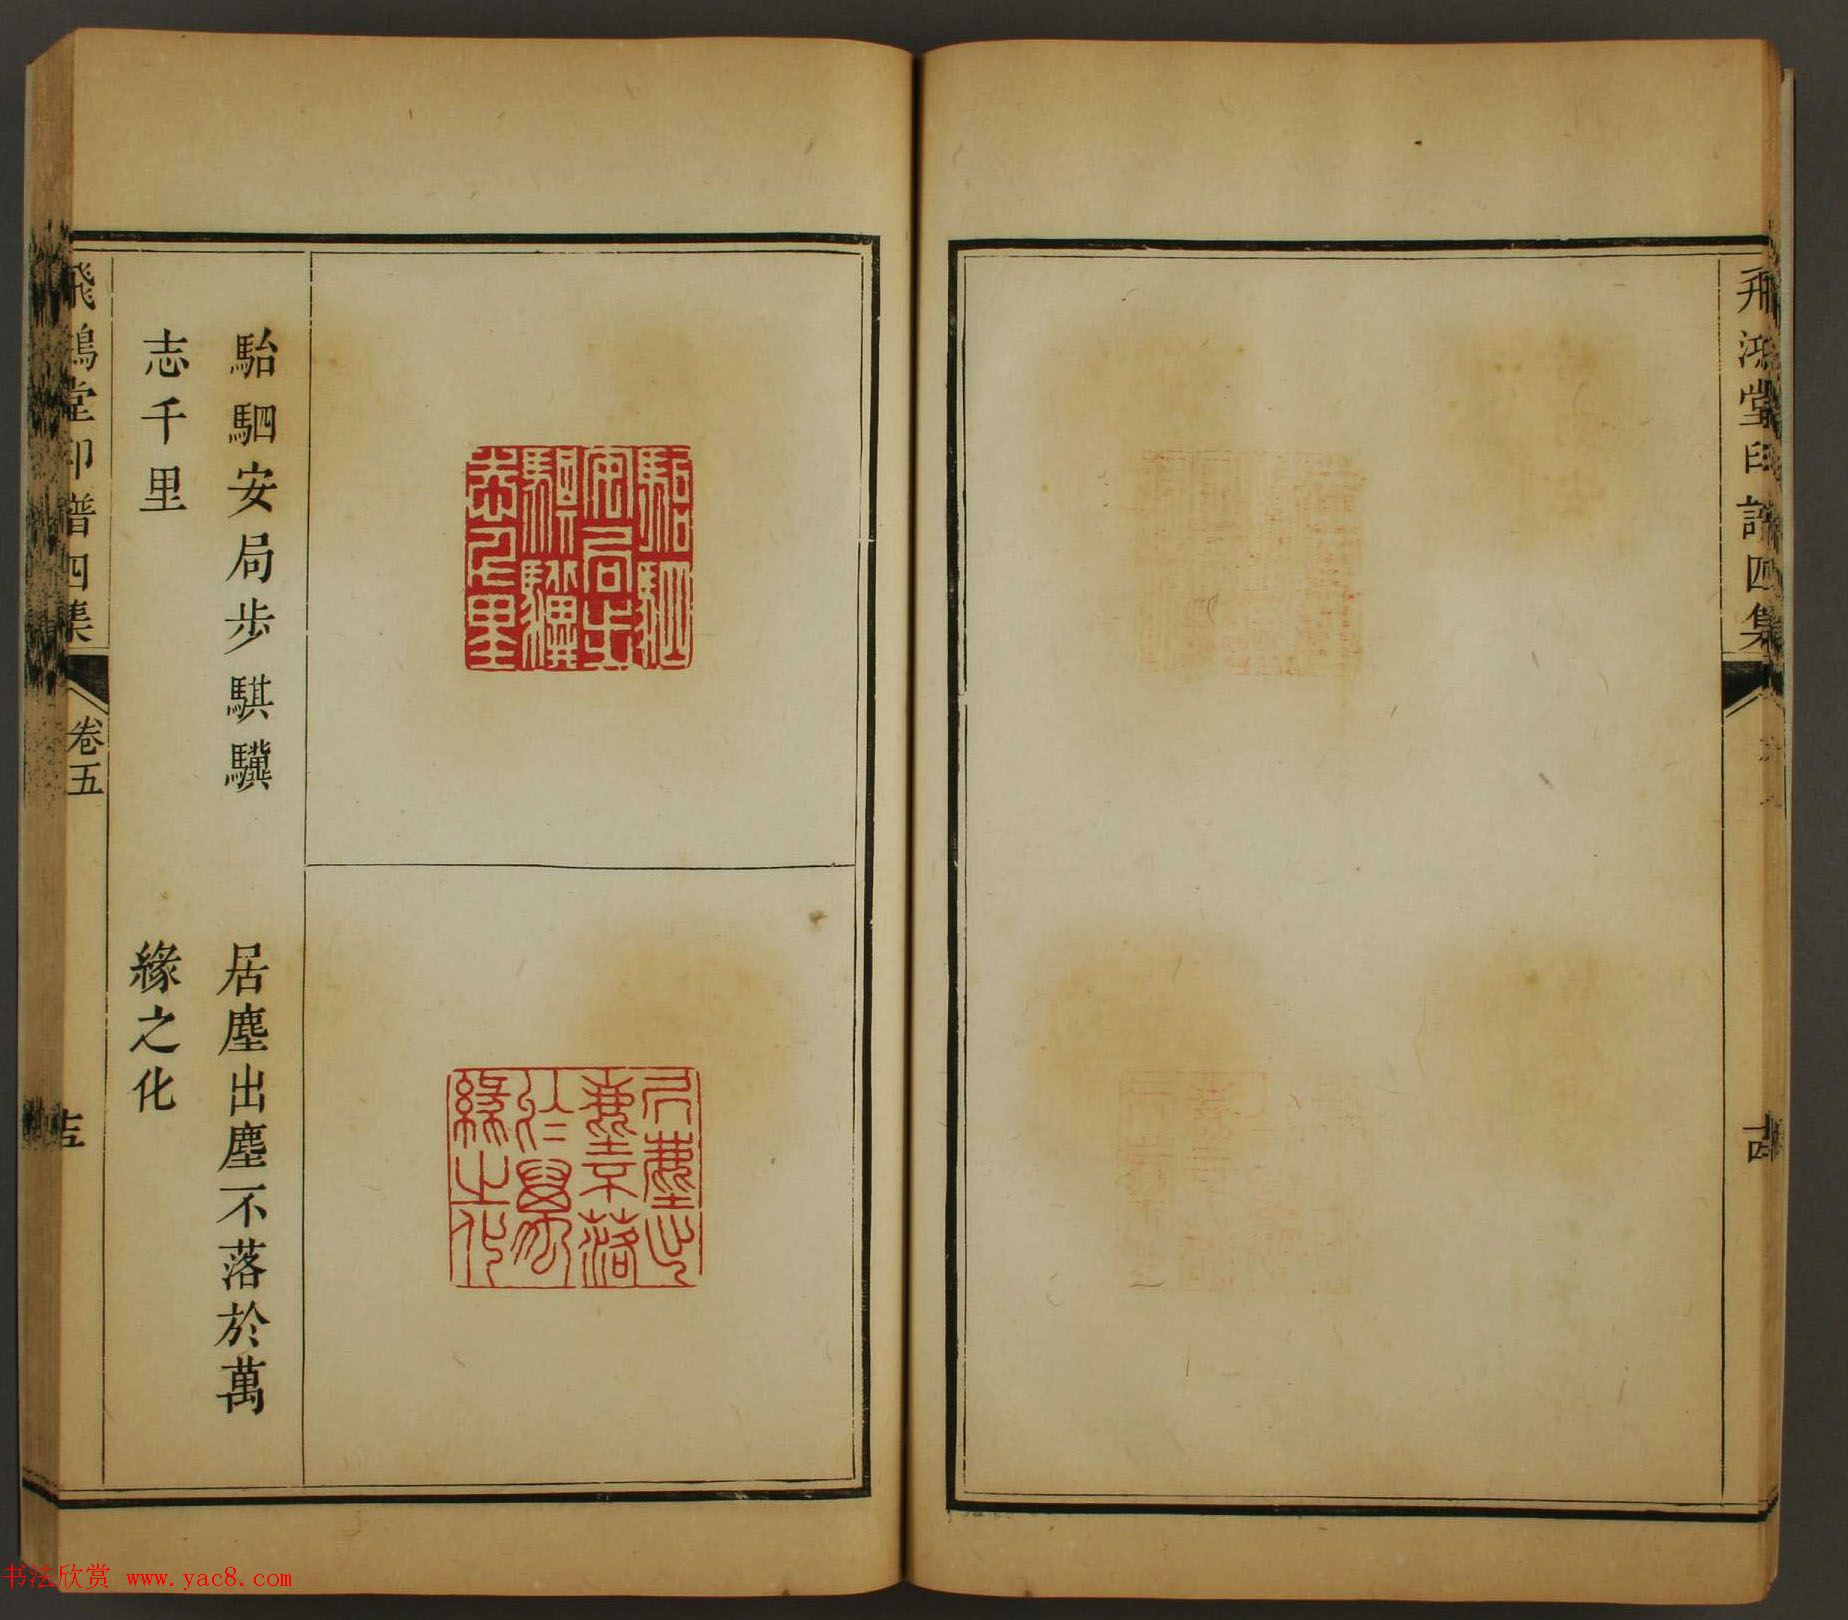 飛鴻堂印譜四集
古
駘駟安局步騏驥
志千里
居塵出塵不落於萬
緣之化
飛鴻堂印譜四集
卷五
书法欣赏 www.yac8.com